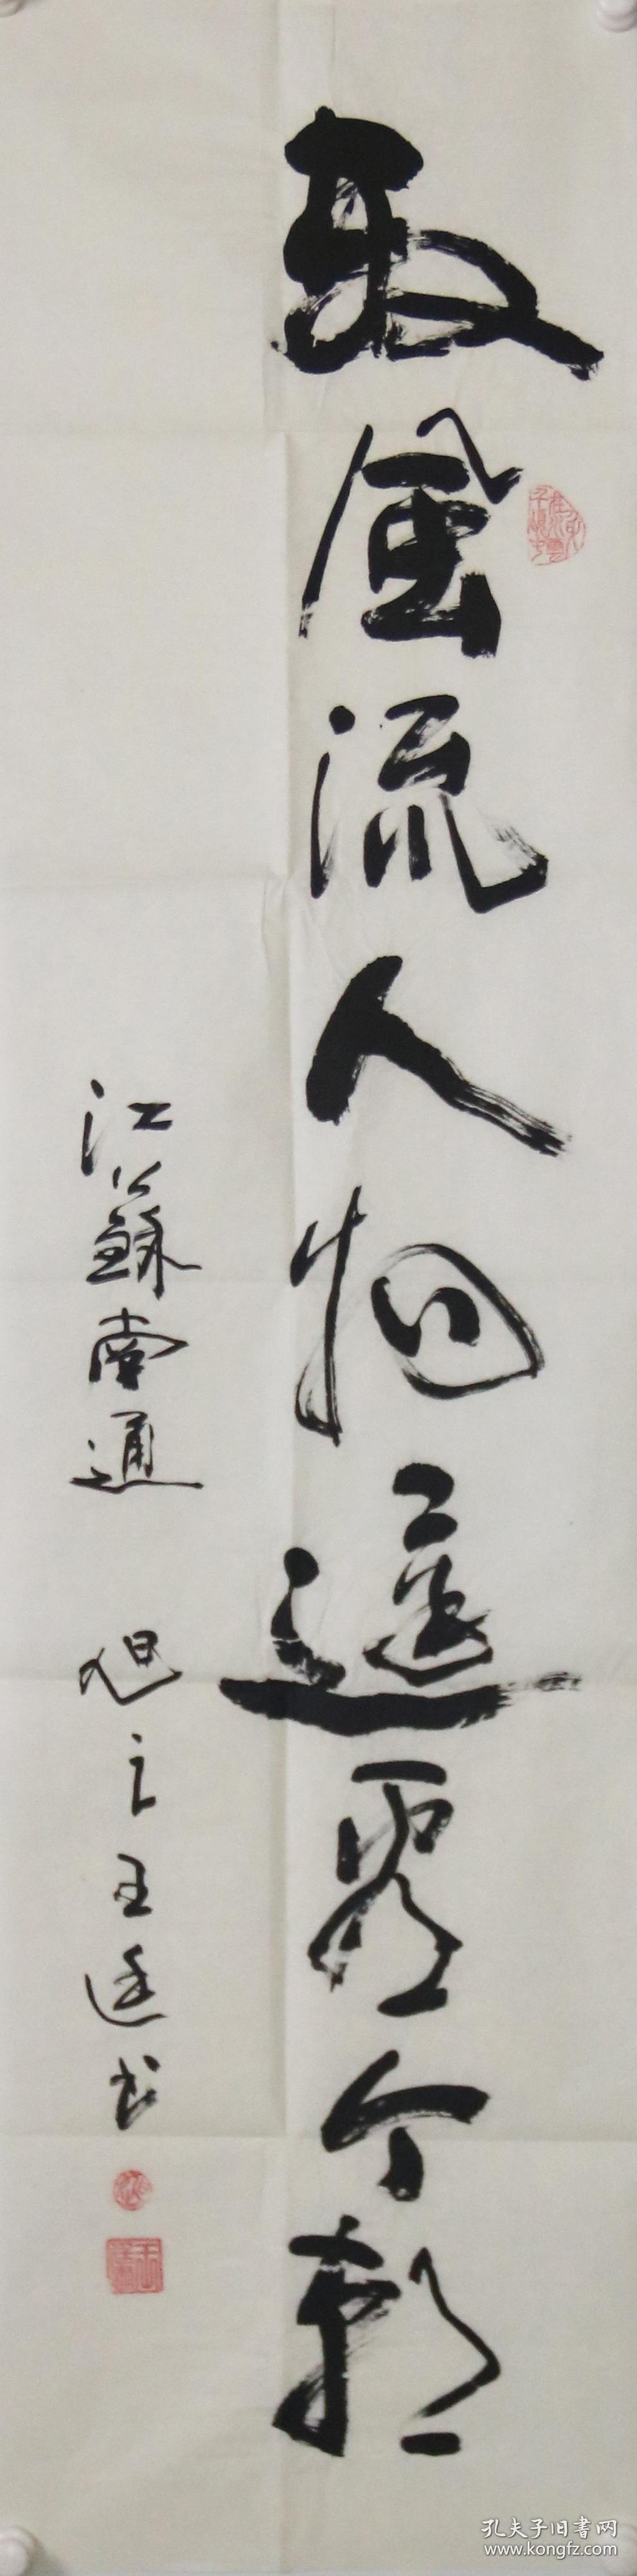 数风流人物還看今朝
江蘇南通 旭之王廷书
孔夫子旧書网
www.kongfz.com